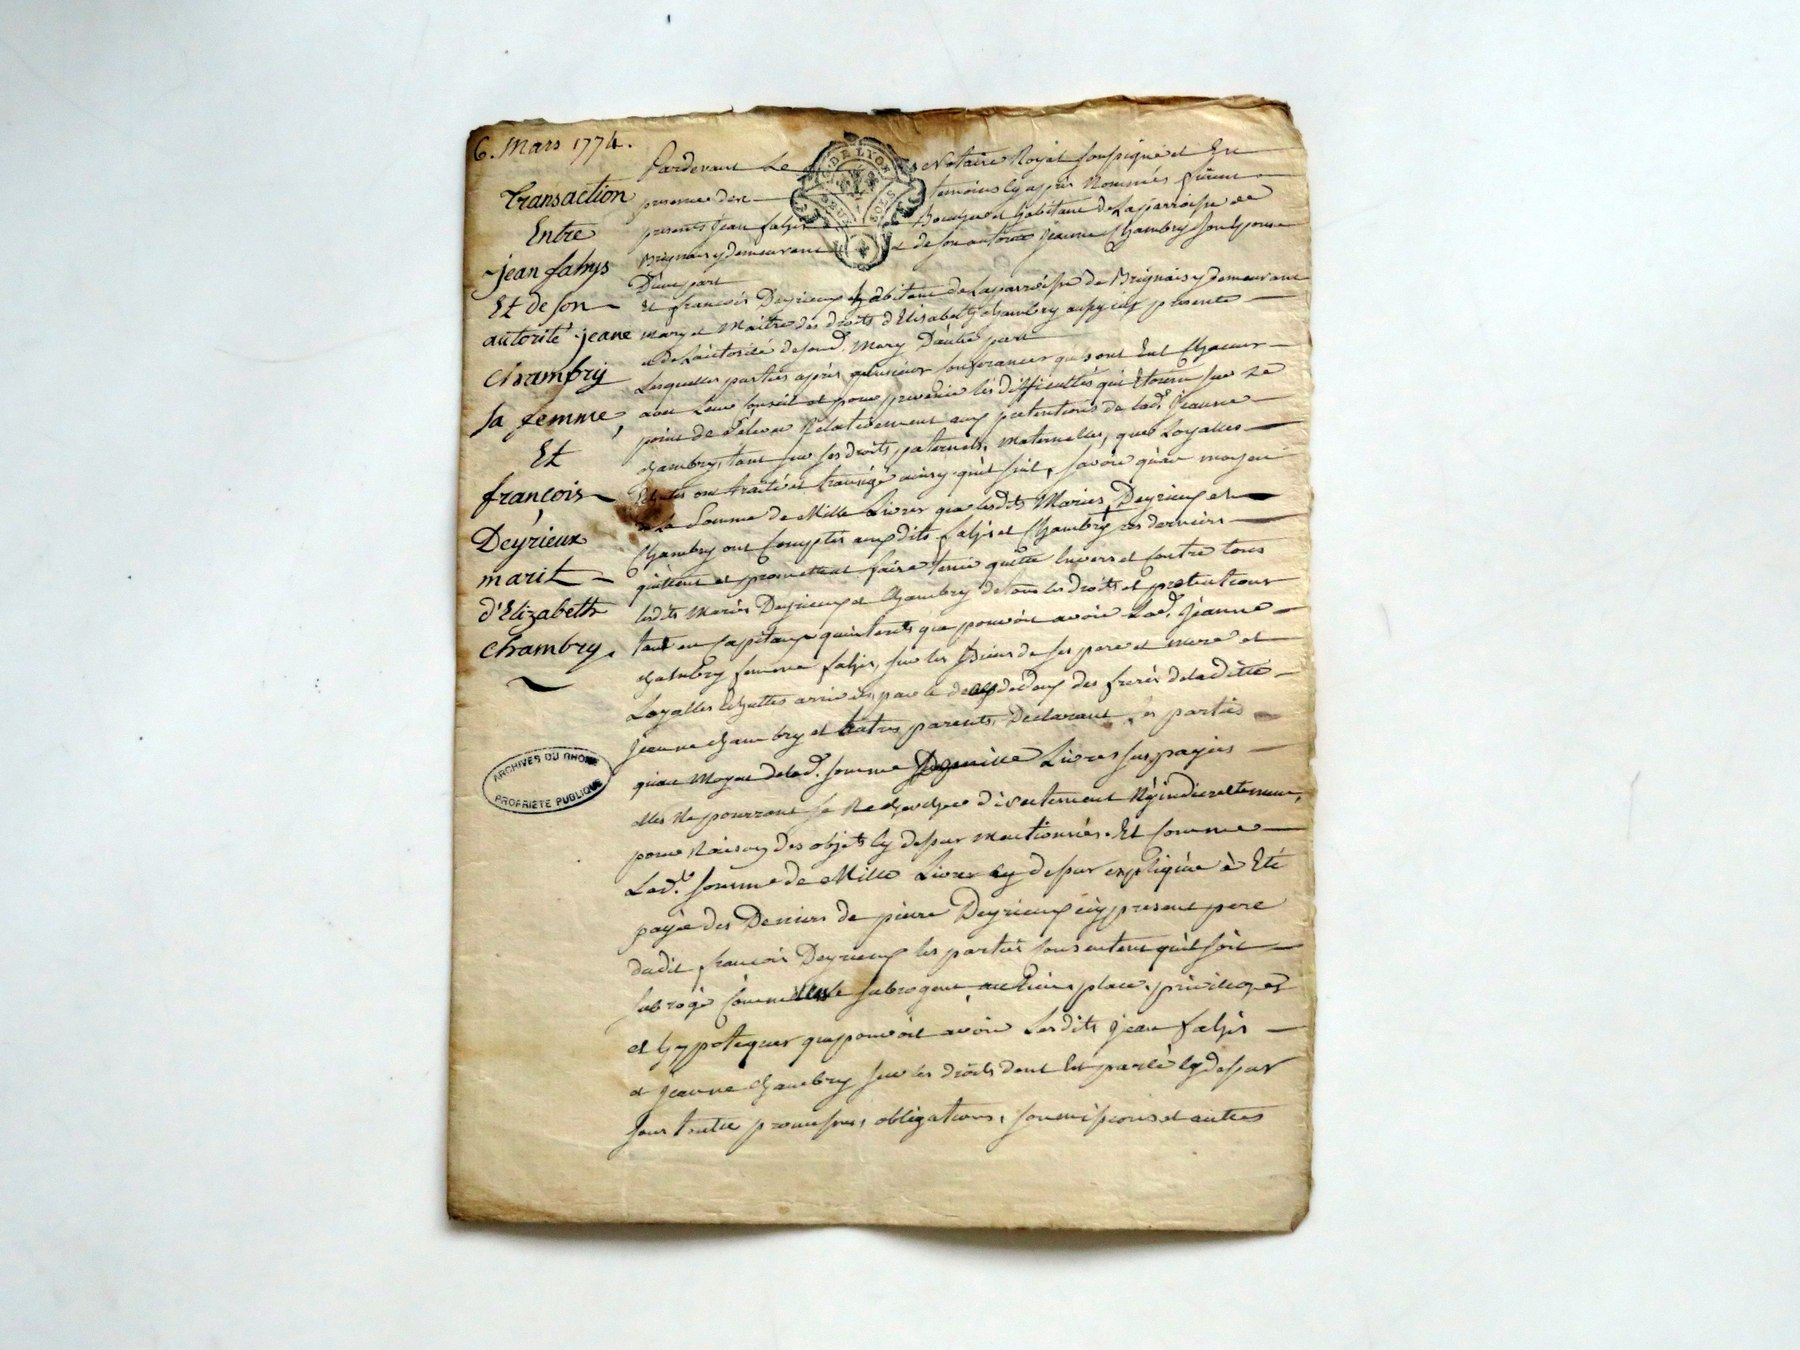 6. Mars 1774.
Transaction
Entre
jean fahys
Et de son
autorité jeane
chambry
sa femme,
Et
françois
Deyrieux
marit
d'Elizabeth
chambry.
ARCHIVES DU RHONE
PROPRIETE PUBLIQUE
G. DE LYON
DEUX SOLS
Pardevant Le Notaire Royal soussigné et En
presence des temoins cy après Nommés furent
presents jean fahys Boucher et habitant de La parroisse de
Brignais y demeurant & de son autorité jeanne Chambry son Epouse
D'une part
Et françois Deyrieux habitant de La parroisse de Brignais y demeurant
mary et Maitre des droits d'Elisabeth chambry aussy icy presente
et de L'autorité de sond. Mary D'autre part
Lesquelles parties après plusieurs conferances qu'ont Eut Chacun
avec Leur conseil et pour prevenir les difficultés qui Etoient sur Le
point de s'élever Relativement aux pretentions de lad.e Jeanne
chambry, tant sur ses droits paternels, maternelles, que Loyalles
Echutes ont traité et transigé ainsy qu'il suit, savoir qu'au moyen
de La somme de Mille Livres que lesdits Mariés Deyrieux et
Chambry ont Comptés auxdits fahys et Chambry ces derniers
quittent et promettent faire tenir quitte Envers et Contre tous
lesdits Mariés Deyrieux et Chambry de tous les droits et pretentions
tant en capitaux qu'interets que pouvoit avoir Lad.e Jeanne
chambry femme fahys, sur les Biens de ses pere et mere et
Loyalles Echuttes arrivées par le décès des freres de laditte
jeanne chambry et autres parents, Declarant les parties
qu'au moyen delad.e somme de mille Livres sus payées
elles ne pourront se Rechercher directement Ny indirectement,
pour Raison des objets cy dessus mentionnés. Et comme
Lad.e somme de Mille Livres cy dessus expliquée à Eté
payée des Deniers de pierre Deyrieux icy present pere
dudit françois Deyrieux les parties consentent qu'il soit
subrogé comme elles le subrogent, au Lieu, place, privileges
et hypoteques que pouvoit avoir Lesdits jean fahys
et jeanne chambry sur les droits dont Est parlé cy dessus
sous toutes promesses, obligations, soumissions et autres